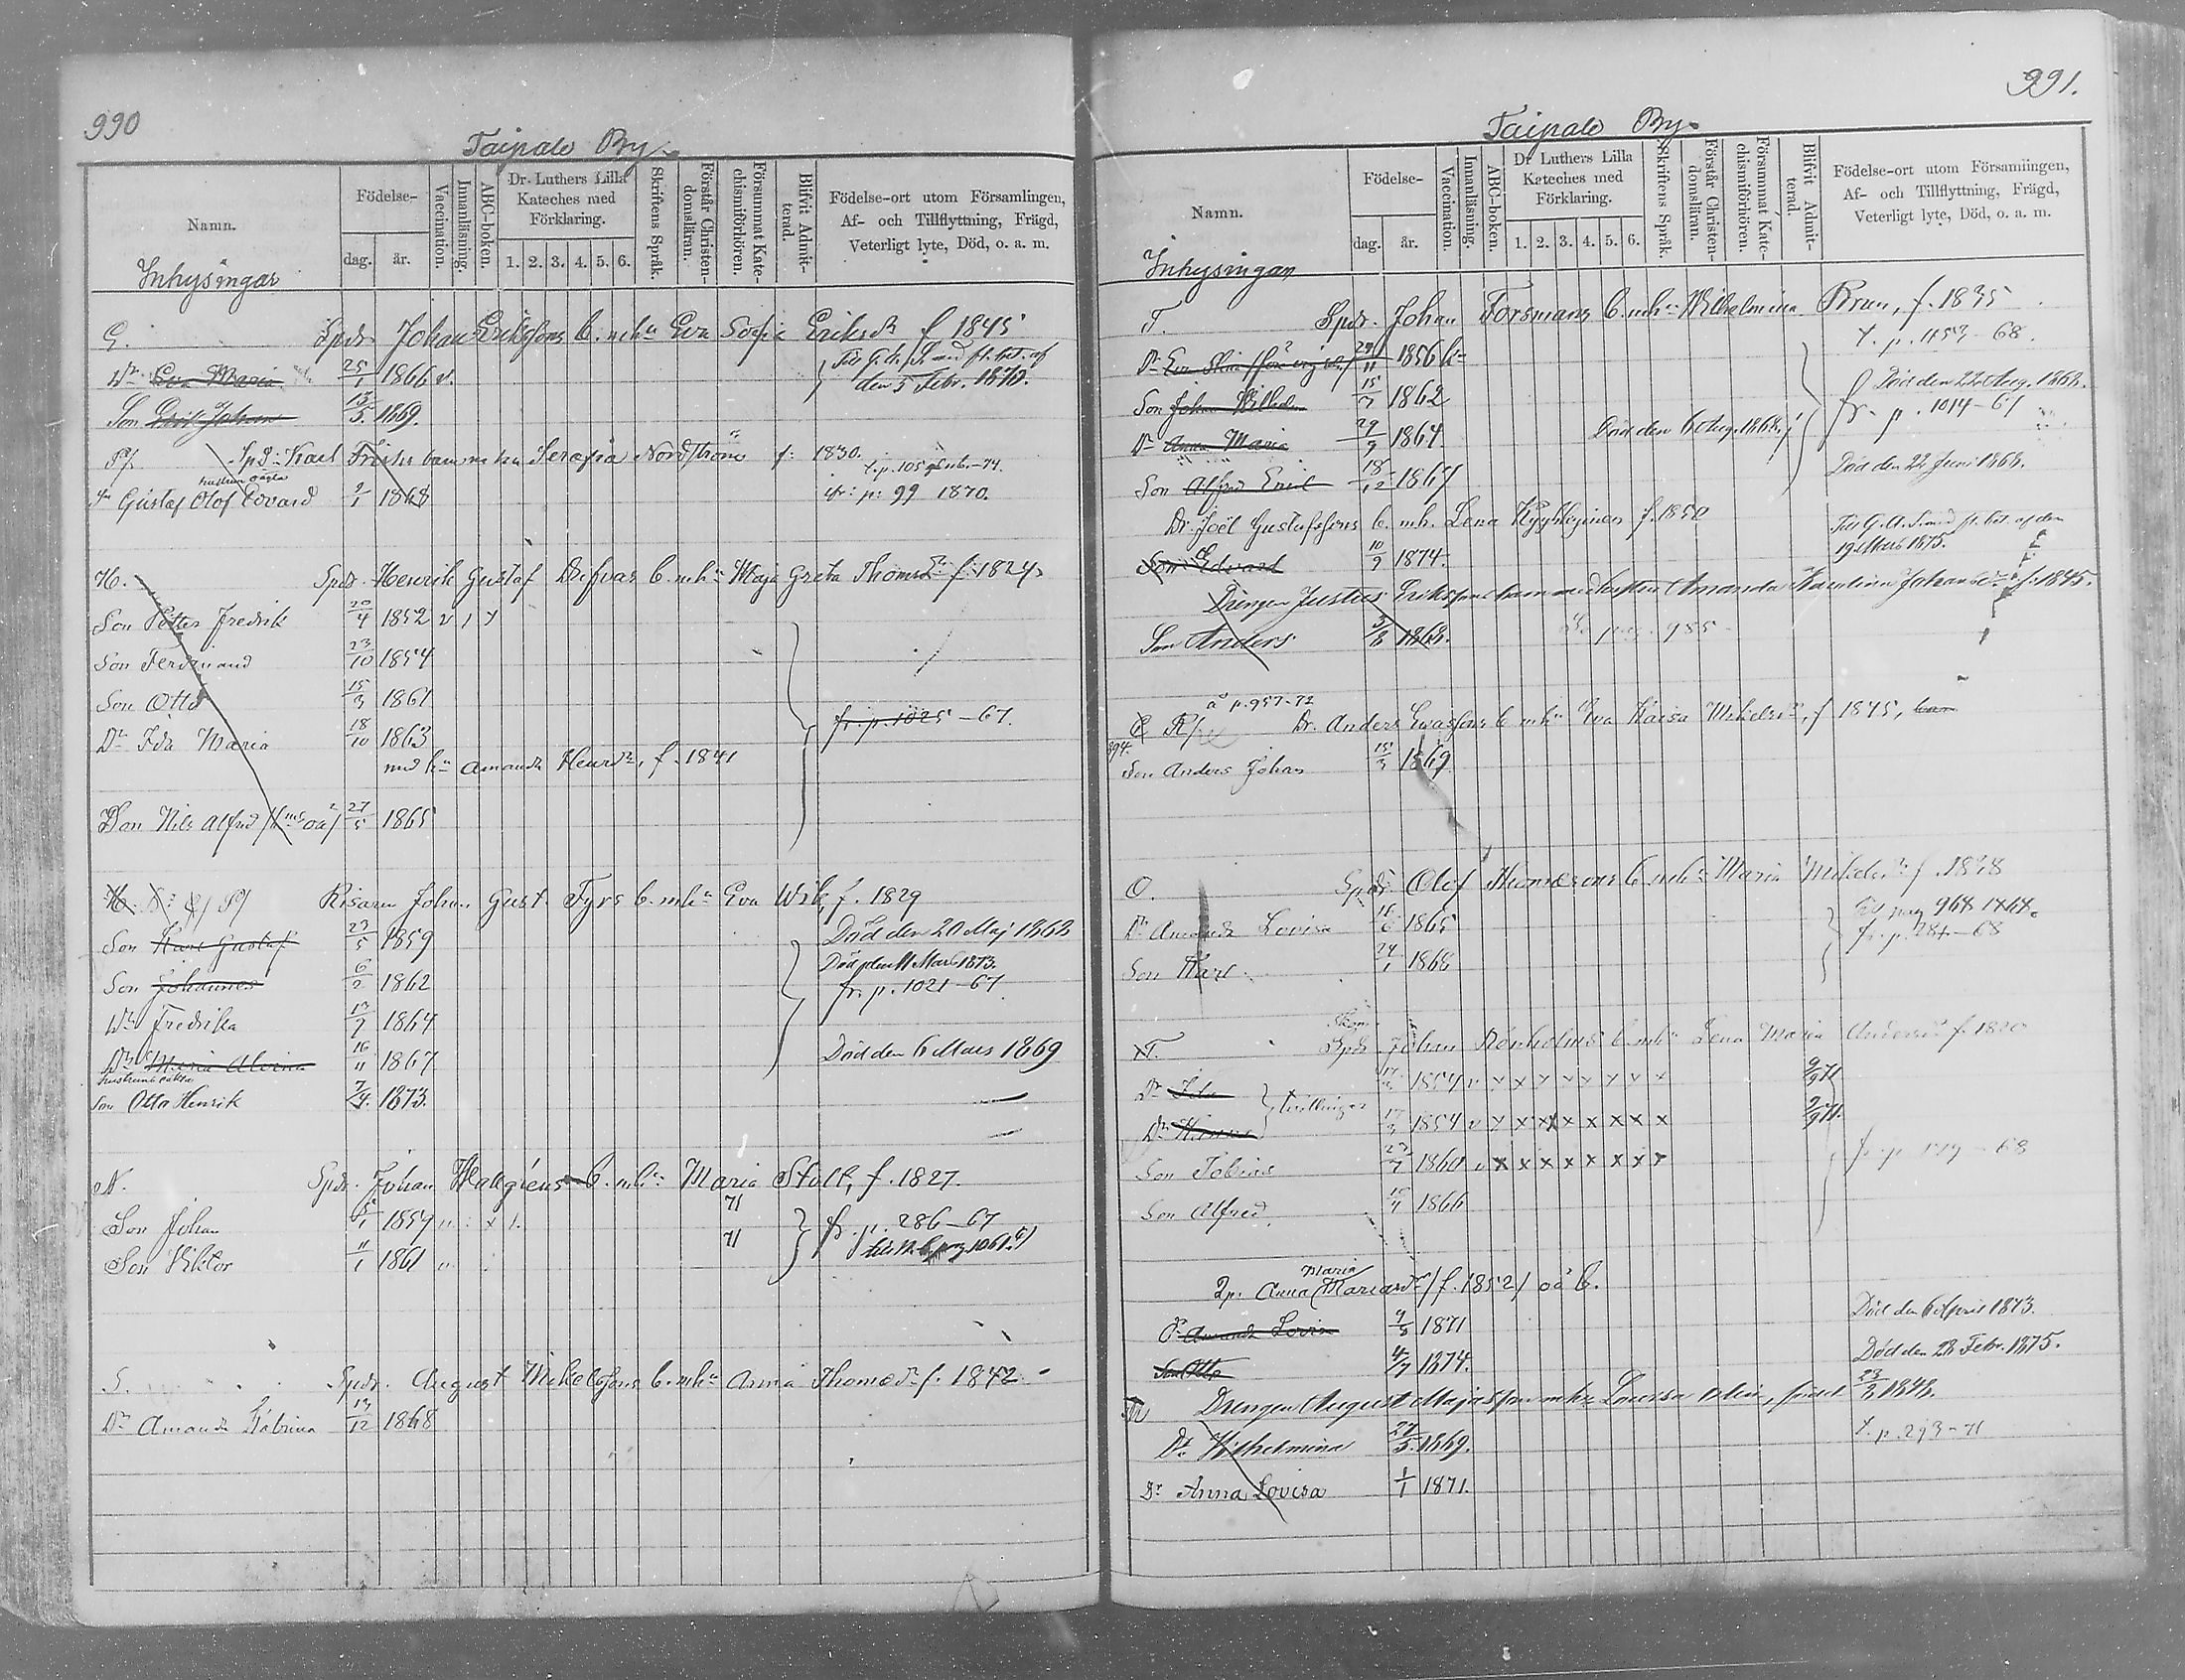 990
Taipale By.
Namn.
Födelse-
dag.
år.
Vaccination.
Innanläsning.
ABC-boken.
Dr. Luthers Lilla Kateches med Förklaring.
1. 2. 3. 4. 5. 6.
Skriftens Språk.
Förstår Christendomsläran.
Försummat Katechismiförhören.
Blifvit Admitterad.
Födelse-ort utom Församlingen,
Af- och Tillflyttning, Frägd,
Veterligt lyte, Död, o. a. m.
Inhysingar
E. Spdr. Johan Erikssons b. mhu Eva Sofia Eriksdr f 1845
Dr Eva Maria 25/1 1866 v.
den 5 Febr. 1870.
Son Erik Johan 13/5 1869.
Karl Serafia Nordström f: 1830.
hustrun oägta
Gustaf Olof Edvard 2/1 1868 fr: p: 99 1870.
H. Spdr. Henrik Gustaf b. mhu Maja Greta Thomasdr f. 1824
Son Petter Fredrik 20/4 1852 v
Son Ferdinand 23/10 1854
Son Otto 15/3 1861
fr. p. 1025-67.
Dr Ida Maria 18/10 1863
med hu Amanda Henrdr, f. 1841
Son Nils Alfred 27/5 1865
Risaren Johan Gust. Fyrs b. mhu Eva Wik, f. 1829
Son Karl Gustaf 23/5 1859 Död den 20 Maj 1868
Son Johannes 6/2 1862 Död den 11 Mars 1873.
fr. p. 1021-67
Dr Fredrika 13/9 1864
Dr Maria Alvina 16/11 1867 Död den 6 Mars 1869
hustruns oäkta
Son Otto Henrik 7/4. 1873.
N. Spdr. Johan b. mhu Maria Stolt, f. 1827.
Son Johan 5/1 1857 71 fr. p. 286-67
Son Viktor 11/1 1861 71 pag 1061.
S. Spdr. August Mikelssons b. mhu Anna Thomasdr f. 1842
Dr Amanda Katrina 13/12 1868
991.
Taipale By.
Namn.
Födelse-
dag.
år.
Vaccination.
Innanläsning.
ABC-boken.
Dr Luthers Lilla Kateches med Förklaring.
1. 2. 3. 4. 5. 6.
Skriftens Språk.
Förstår Christendomsläran.
Försummat Katechismiförhören.
Blifvit Admitterad.
Födelse-ort utom Församlingen,
Af- och Tillflyttning, Frägd,
Veterligt lyte, Död, o. a. m.
Inhysingar
F. Spdr. Johan Forsmans b. mhu Wilhelmina Brun, f. 1835
t. p. 1153-68.
Dr Eva 29/11 1856
Son Johan Wilhelm 15/7 1862 Död den 22 Aug. 1868.
fr. p. 1014-67
Dr Anna Maria 29/9 1864 Död den 6 Aug. 1868.
Son Alfred Emil 18/12 1867 Död den 22 Juni 1868.
Dr. Joel Gustafssons b. mh. Lena f. 1850
19 Mars 1875.
Son Edvard 10/9 1874.
Drengen Justus Erikssons barn med hustru Amanda Karolina Johansdr f. 1845.
Son Anders 3/8 1868. pag. 985
å p. 957-72
Dr. Anders b. mhu Eva Kaisa Mikelsdr, f 1845,
Son Anders Johan 15/3 1869
O. Spdr Olof Thomassons b. mhu Maria Mikelsdr f. 1838
Dr Amanda Lovisa 16/6 1865 Till pag 968 1868.
fr. p. 284-68
Son Karl 24/1 1868
Spdr. Johan Rönholms b. mhu Lena Maria Andersdr f. 1820
Dr Ida 17/3 1854 v x x x x x x x x 9/9 71
tvillingar
Dr 17/3 1854 v x x x x x x x x 9/9 71.
Son Tobias 23/7 1860 v x x x x x x x x
Son Alfred 15/4 1866
Maria
Qp. Anna Mariasdr (f. 1852) oä b.
Dr Amanda Lovisa 9/3 1871 Död den 6 April 1873.
Son Otto 4/7 1874. Död den 28 Febr. 1875.
Drengen August Majasson mhu Lovisa född 23/3 1848.
Dr Wilhelmina 27/5 1869. t. p. 293-71
Dr Anna Lovisa 1/1 1871.